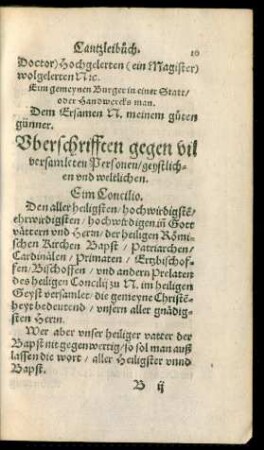 Cantzleibůch.
10
Doctor) Hochgelerten (ein Magister)
wolgelerten N ic.
Eim gemeynen Burger in einer Statt/
oder Handwercks man.
Dem Ersamen N. meinem gůten
günner.
Vberschrifften gegen vil
versamleten Personen/geystlich-
en vnd weltlichen.
Eim Concilio.
Den aller heiligsten/hochwirdigstē/
ehrwirdigsten/hochwirdigen in Gott
vättern vnd Herrn/der heiligen Römi-
schen Kirchen Bapst/Patriarchen/
Cardinälen/Primaten/Ertzbischof-
fen/Bischoffen/vnd andern Prelaten
des heiligen Concilij zu N. im heiligen
Geyst versamlet/die gemeyne Christē-
heyt bedeutend/vnsern aller gnädig-
sten Herrn.
Wer aber vnser heiliger vatter der
Bapst nit gegenwertig/so sol man auß
lassen die wort/aller Heiligster vnnd
Bapst.
B ij